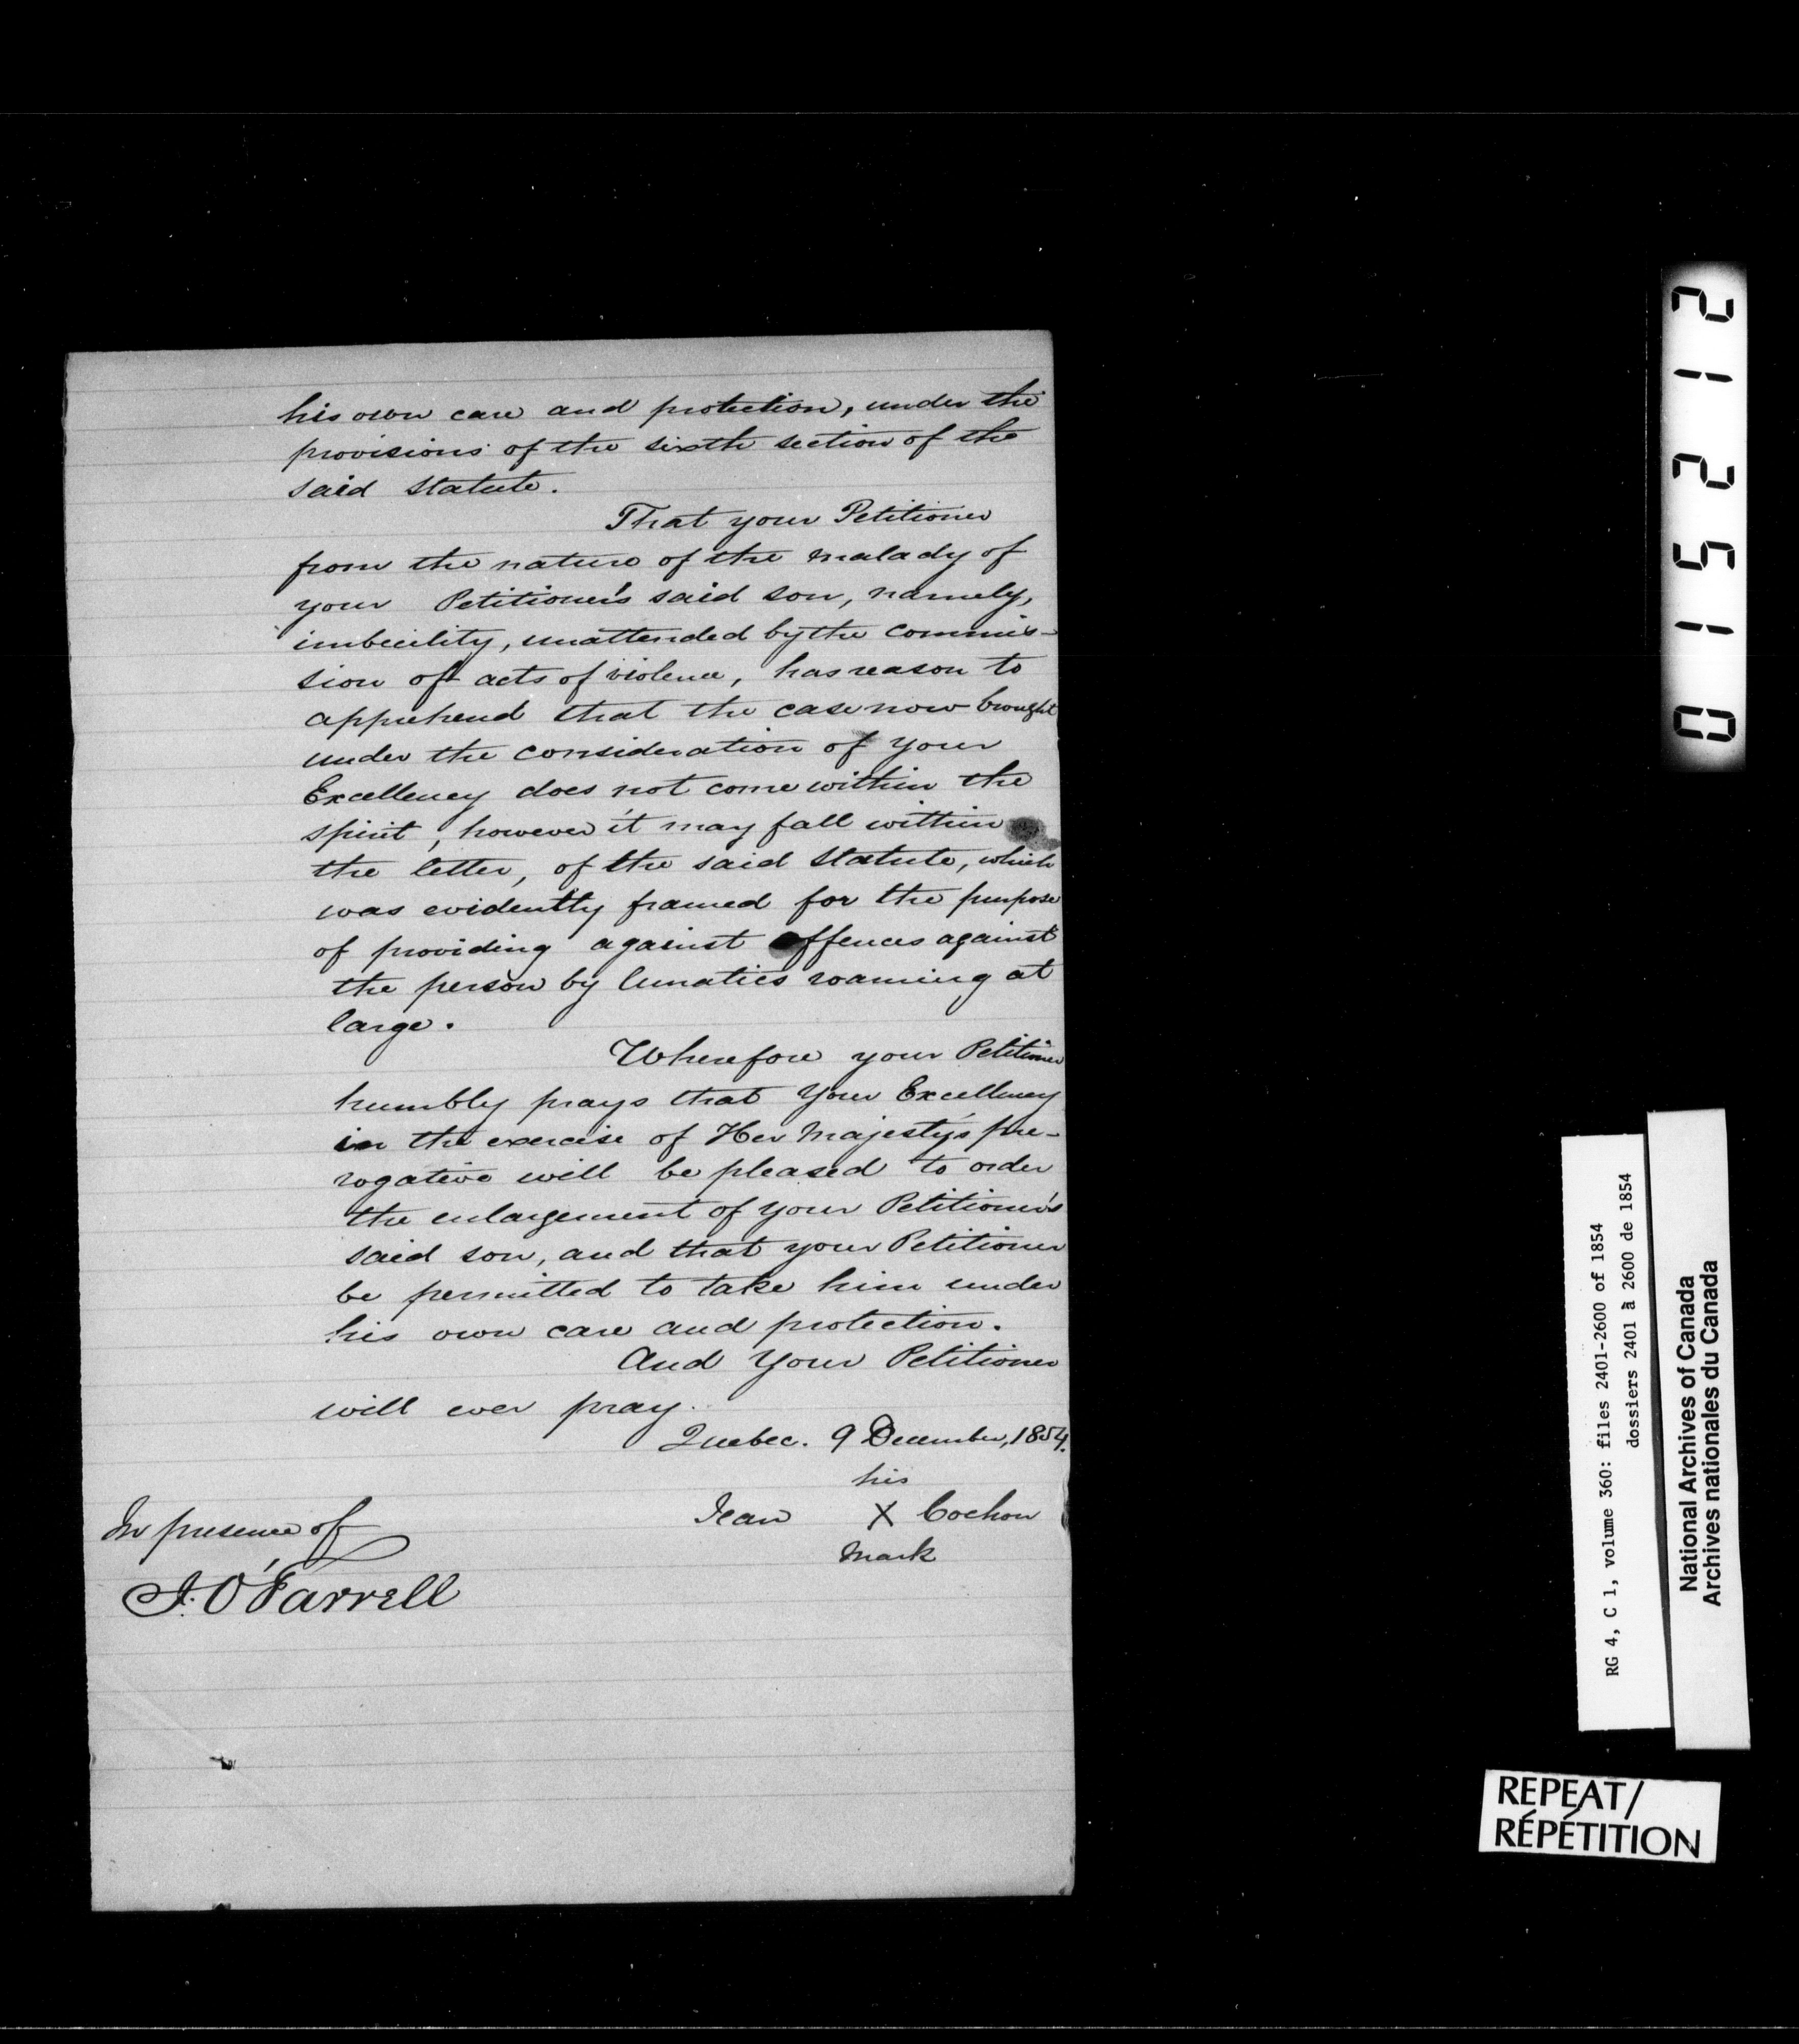 his own care and protection, under the
provisions of the sixth section of the
said statute.
That your Petitioner
from the nature of the malady of
your Petitioner's said son, namely,
imbecility, unattended by the commis-
sion of acts of violence, has reason to
apprehend that the case now brought
under the consideration of your
Excellency does not come within the
spirit, however it may fall within
the letter, of the said statute, which
was evidently framed for the purpose
of providing against offences against
the person by lunatics roaming at
large.
Wherefore your Petitioner
humbly prays that Your Excellency
in the exercise of Her Majesty's pre-
rogative will be pleased to order
the enlargement of your Petitioner's
said son, and that your Petitioner
be permitted to take him under
his own care and protection.
And Your Petitioner
will ever pray.
Quebec. 9 December, 1854.
his
Jean X Cochon
mark
In presence of
J. O'Farrell
015212
RG 4, C 1, volume 360: files 2401-2600 of 1854
dossiers 2401 à 2600 de 1854
National Archives of Canada
Archives nationales du Canada
REPEAT/
RÉPÉTITION